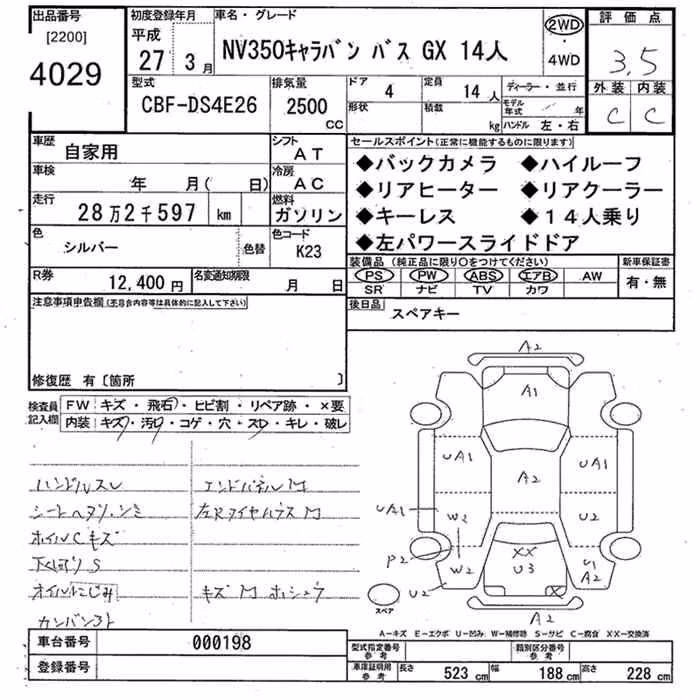 出品番号
[2200]
4029
初度登録年月
平成
27 3月
車名・グレード
NV350キャラバン バス GX 14人
2WD
・
4WD
評価点
3.5
外装 内装
C C
型式
CBF-DS4E26
排気量
2500
CC
ドア
4
形状
定員
14人
積載
kg
ディーラー・並行
モデル年式 年
ハンドル 左・右
車歴
自家用
シフト
AT
車検
年 月( 日)
冷房
AC
走行
28万2千597 km
燃料
ガソリン
色
シルバー
色替
色コード
K23
R券
12,400円
名変通知期限
月 日
セールスポイント(正常に機能するものに限ります)
◆バックカメラ ◆ハイルーフ
◆リアヒーター ◆リアクーラー
◆キーレス ◆14人乗り
◆左パワースライドドア
装備品 (純正品に限り○をつけてください)
PS PW ABS エアB AW
SR ナビ TV カワ
新車保証書
有・無
後日品
スペアキー
注意事項申告欄(不具合内容等は具体的に記入して下さい)
修復歴 有〔箇所 〕
検査員記入欄
FW キズ・飛石・ヒビ割・リペア跡・×要
内装 キズ・汚れ・コゲ・穴・スレ・キレ・破レ
ハンドルスレ エンドパネルM
ホイルCキズ
下くぼりS
オイルにじみ キズM ホシュウ
A2
A1
UA1 UA1
A2
UA1 W2 U2
P2 W2
XX
U3
U2
A2
X
A2
スペア
A-キズ E-エクボ U-凹み W-補修跡 S-サビ C-腐食 XX-交換済
車台番号 000198
登録番号
型式指定番号
参考
類別区分番号
参考
車庫証明用
参考
長さ 523 cm 幅 188 cm 高さ 228 cm